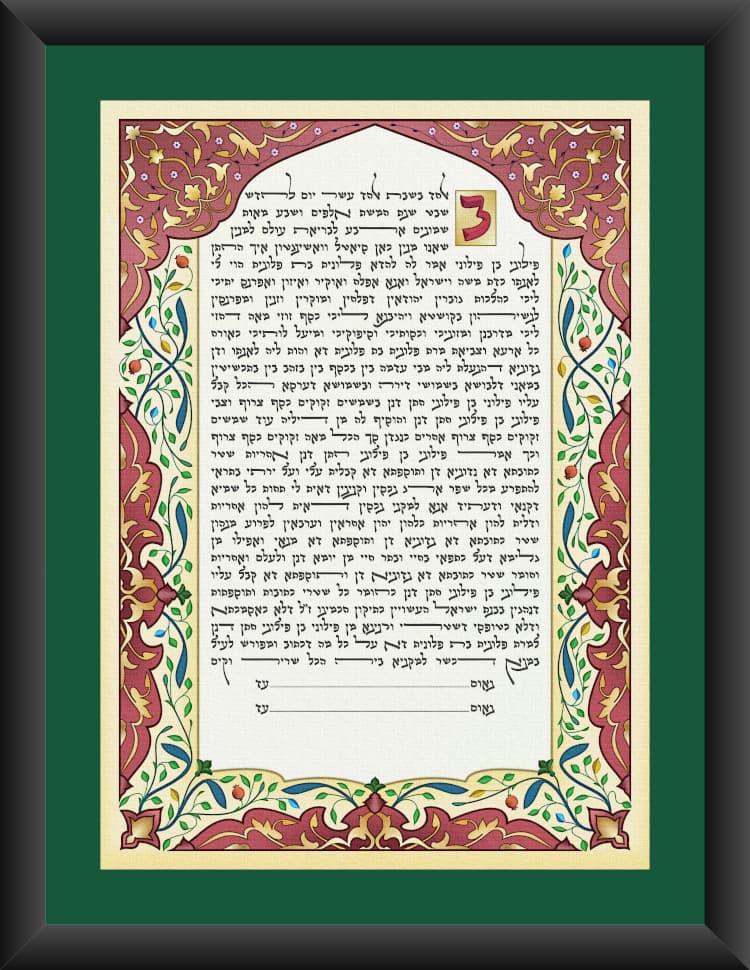 באחד בשבת אחד עשר יום לחדש
שבט שנת חמשת אלפים ושבע מאות
שמונים ארבע לבריאת עולם למנין
שאנו מנין כאן סיאטל וואשינגטון איך החתן
פילוני בן פילוני אמר לה להדא פלונית בת פלונית הוי לי
לאנתו כדת משה וישראל ואנא אפלח ואוקיר ואיזון ואפרנס יתיכי
ליכי כהלכות גוברין יהודאין דפלחין ומוקרין וזנין ומפרנסין
לנשיהון בקושטא ויהיבנא ליכי כסף זוזי מאה דחזי
ליכי מדרבנן ומזוניכי וכסותיכי וסיפוקיכי ומיעל לותיכי כאורח
כל ארעא וצביאת מרת פלונית בת פלונית דא והות ליה לאנתו ודן
נדוניא דהנעלת ליה מבי עדמה בין בכסף בין בזהב בין בתכשיטין
במאני דלבושא בשמושי דירה ובשמושא דערסא הכל קבל
עליו פילוני בן פילוני חתן דנן בחמשים זקוקים כסף צרוף וצבי
פילוני בן פילוני חתן דנן והוסיף לה מן דיליה עוד חמשים
זקוקים כסף צרוף אחרים כנגדן סך הכל מאה זקוקים כסף צרוף
וכך אמר פילוני בן פילוני חתן דנן אחריות שטר
כתובתא דא נדוניא דן ותוספתא דא קבלית עלי ועל ירתי בתראי
להתפרע מכל שפר ארג נכסין וקנינין דאית לי תחות כל שמיא
דקנאי ודעתיד אנא למקני נכסין דאית להון אחריות
ודלית להון אחריות כלהון יהון אחראין וערבאין לפרוע מנהון
שטר כתובתא דא נדוניא דן ותוספתא דא מנאי ואפילו מן
גלימא דעל כתפאי בחיי ובתר חיי מן יומא דנן ולעלם ואחריות
וחומר שטר כתובתא דא נדוניא דן ותוספתא דא קבל עליו
פילוני בן פילוני חתן דנן כחומר כל שטרי כתובות ותוספתות
דנהגין בבנת ישראל העשויין כתיקון חכמינו ז״ל דלא כאסמכתא
ודלא כטופסי דשטרי וקנינא מן פילוני בן פילוני חתן דנן
למרת פלונית בת פלונית דא על כל מה דכתוב ומפורש לעיל
במנא דכשר למקניא ביה הכל שריר וקים
נאום עד
נאום עד